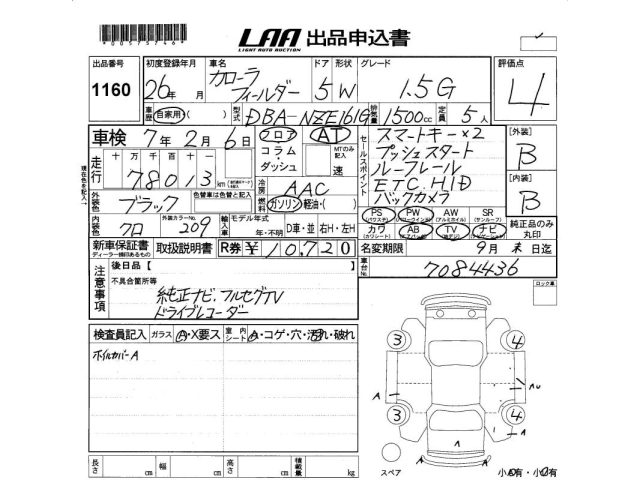 *00575746*
LAA 出品申込書
LIGHT AUTO AUCTION
出品番号 初度登録年月 車名 ドア 形状 グレード 評価点
1160 26年 月 カローラ フィールダー 5 W 1.5G 4
車歴 自家用・( ) 型式 DBA-NZE161G 排気量 1500cc 定員 5人
車検 7年 2月 6日 フロア・コラム・ダッシュ AT MTのみ記入 速
セールスポイント
スマートキー×2
プッシュスタート
ルーフレール
ETC、HID
バックカメラ
[外装] B
[内装] B
走行 十 万 千 百 十 一
78013 km
冷房 AAC
燃料 ガソリン・軽油・( )
外装色 ブラック 色替車は色替と記入
内装色 クロ 外装カラーNo. 209 輸入車 モデル年式 年・不明 D車・並 右H・左H
PS PW AW SR
(パワステ) (パワーウィンドウ) (アルミホイル) (サンルーフ)
カワ AB TV ナビ
純正品のみ丸印
新車保証書 取扱説明書 R券 ¥10,720 名変期限 9月 末日迄
ディーラー捺印あるもの
車台No. 7084436
注意事項 後日品【
不具合箇所等
純正ナビ、フルセグTV
ドライブレコーダー
ロック車
検査員記入 ガラス A・X要ス 室内シート A・コゲ・穴・汚れ・破れ
ホイルカバーA
3 4
A
3 4
A
A
A
スペア
長さ cm 幅 cm 高さ cm 積載量 kg
小A有・小U有